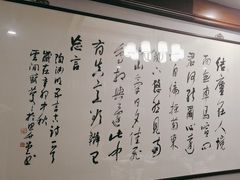 結廬在人境
而無車馬喧問
君何能爾心遠
地自偏採菊東
籬下悠然見南
山山氣日夕佳
飛鳥相與還此中
有真意欲辨已
忘言
陶淵明
歲在辛卯中秋